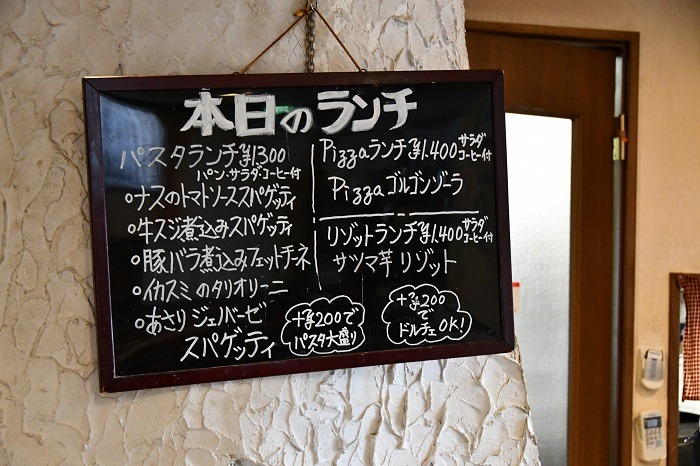 本日のランチ
パスタランチ¥1,300
パン・サラダ・コーヒー付
・ナスのトマトソーススパゲッティ
・牛スジ煮込みスパゲッティ
・豚バラ煮込みフェットチーネ
・イカスミのタリオリーニ
・あさりジェノバーゼ
スパゲッティ
+¥200で
パスタ大盛り
Pizzaランチ¥1,400 サラダ
コーヒー付
Pizza ゴルゴンゾーラ
リゾットランチ¥1,400 サラダ
コーヒー付
サツマ芋リゾット
+¥200
で
ドルチェOK!